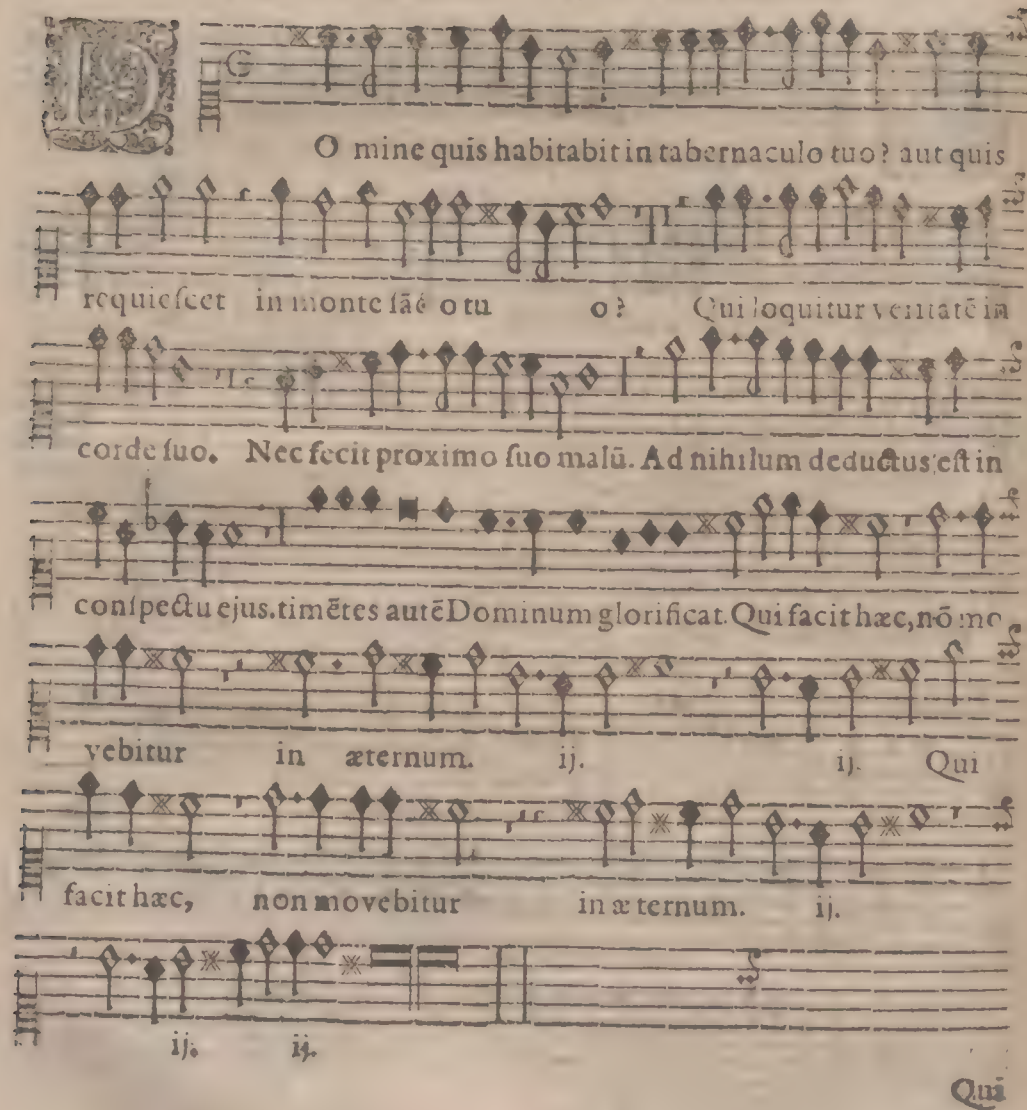 DO mine quis habitabit in tabernaculo tuo? aut quis
requieſcet in monte ſāc̄ o tu o? Qui loquitur veritatē in
corde ſuo. Nec fecit proximo ſuo malū. Ad nihilum deductus eſt in
conſpectu ejus. timētes autē Dominum glorificat. Qui facit hæc, nō mo
vebitur in æternum. ij. ij. Qui
facit hæc, non movebitur in æ ternum. ij.
ij. ij.
Quā